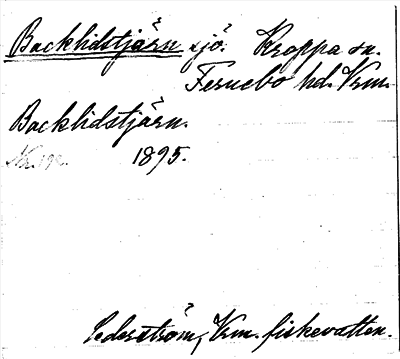 Backlidstjärn sjö. Kroppa sn.
Fernebo hd. Vrm.
Backlidstjärn.
1895.
Cederström, Vrm. fiskevatten.